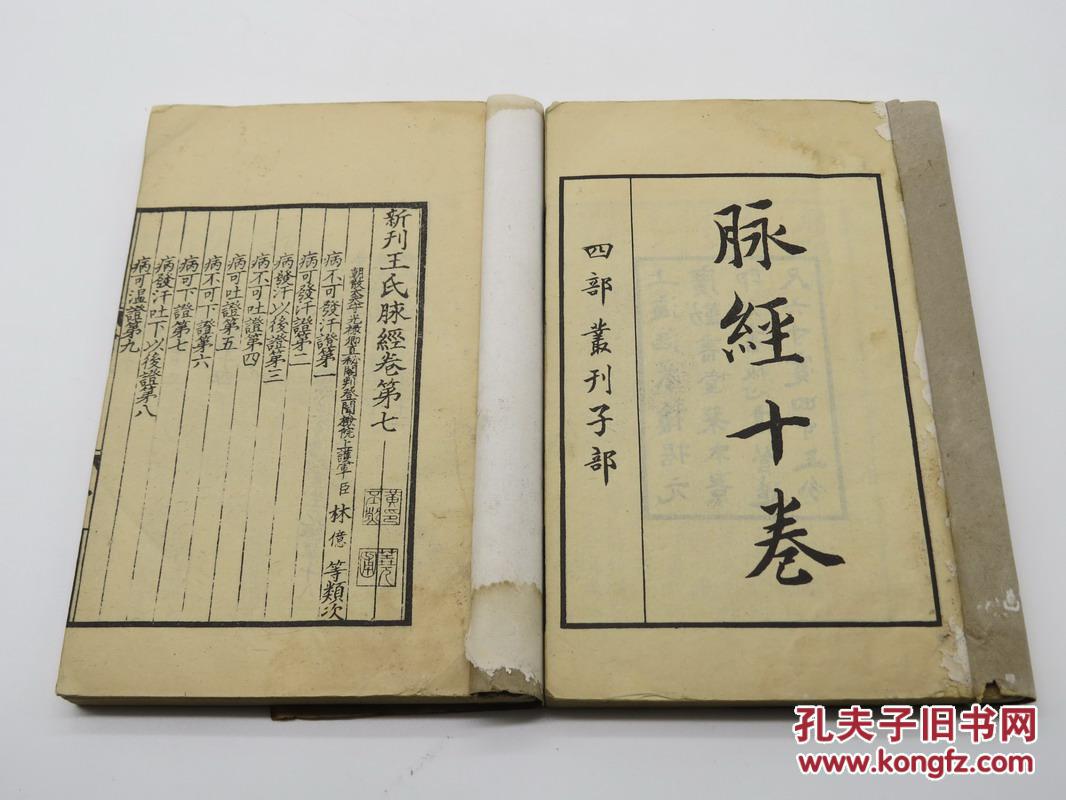 脉經十卷
四部叢刊子部
新刊王氏脉經卷第七
朝散大夫守光祿卿直秘閣判登聞檢院上護軍臣 林億 等類次
病不可發汗證第一
病可發汗證第二
病發汗以後證第三
病不可吐證第四
病可吐證第五
病不可下證第六
病可下證第七
病發汗吐下以後證第八
病可温證第九
孔夫子旧书网
www.kongfz.com